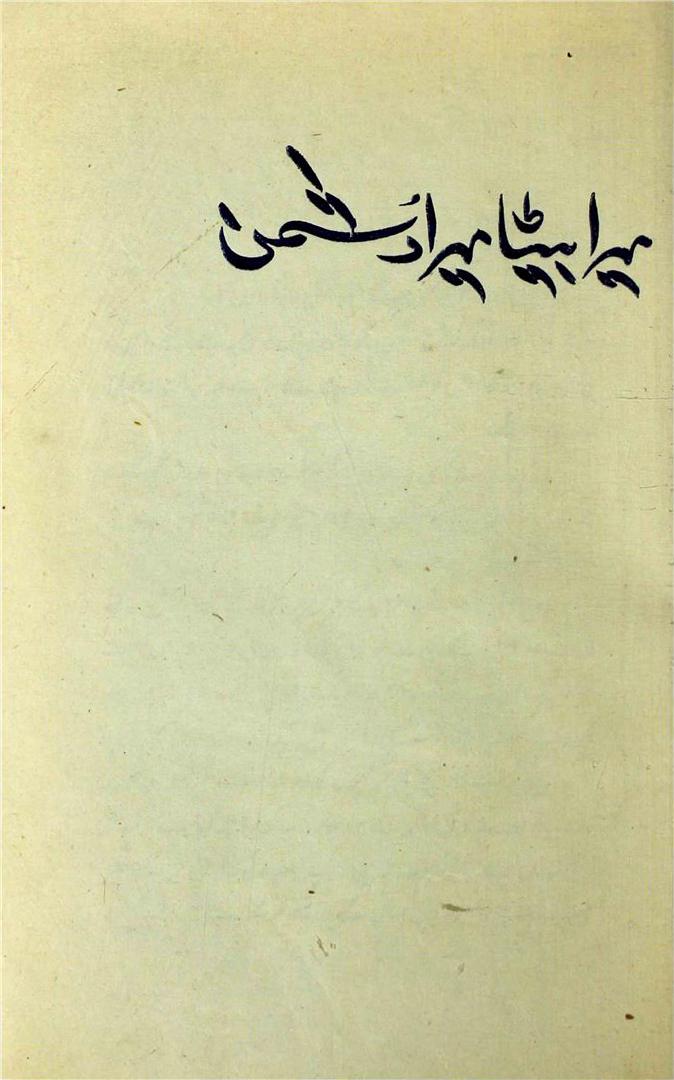 میرا بیٹا میرا دُشمن